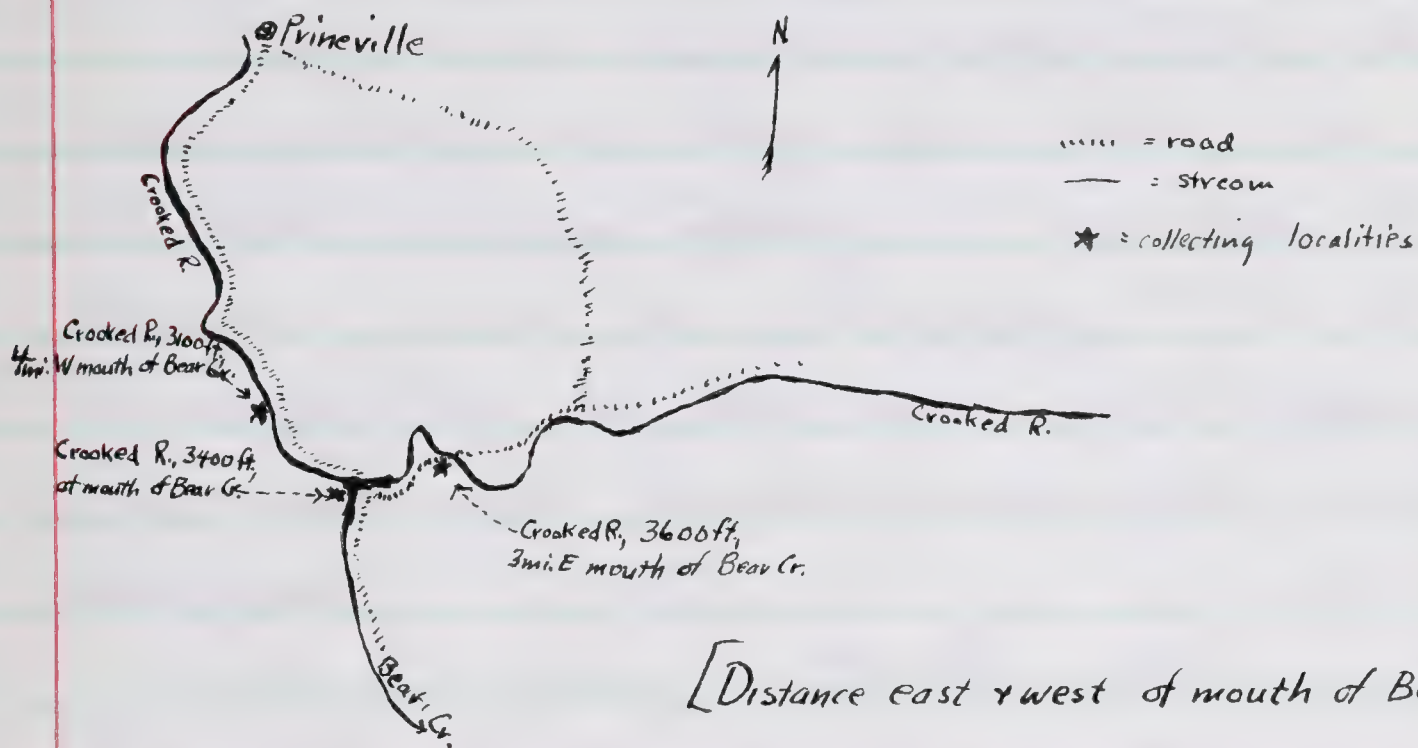 Prineville
N
= road
= stream
= collecting localities
Crooked R.
Crooked R., 3100 ft,
4 mi. W mouth of Bear Cr.
Crooked R., 3400 ft,
at mouth of Bear Cr.
Crooked R., 3600 ft,
3 mi. E mouth of Bear Cr.
Crooked R.
Bear Cr.
[Distance east & west of mouth of